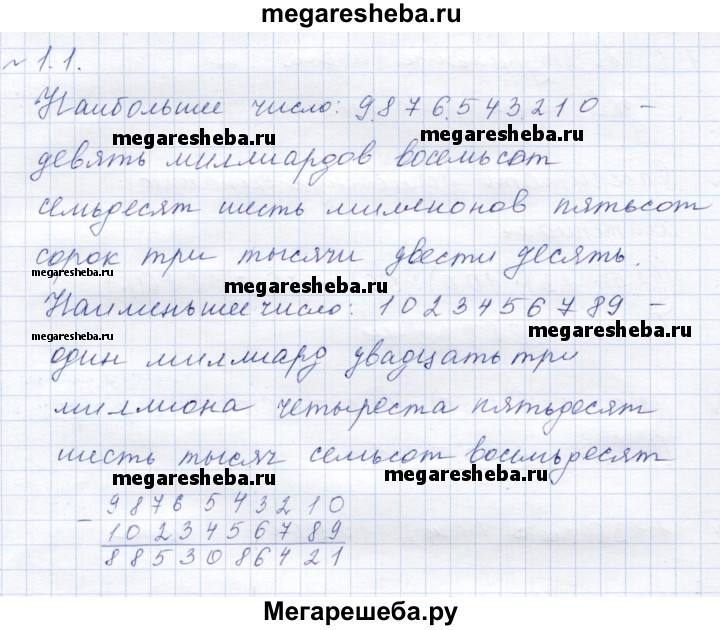 megaresheba.ru
№ 1.1.
Наибольшее число: 9876543210 –
megaresheba.ru megaresheba.ru
девять миллиардов восемьсот
семьдесят шесть миллионов пятьсот
сорок три тысячи двести десять.
megaresheba.ru megaresheba.ru
Наименьшее число: 1023456789 –
megaresheba.ru megaresheba.ru
один миллиард двадцать три
миллиона четыреста пятьдесят
шесть тысяч семьсот восемьдесят
megaresheba.ru megaresheba.ru
– 9876543210
1023456789
8853086421
Мегарешеба.ру